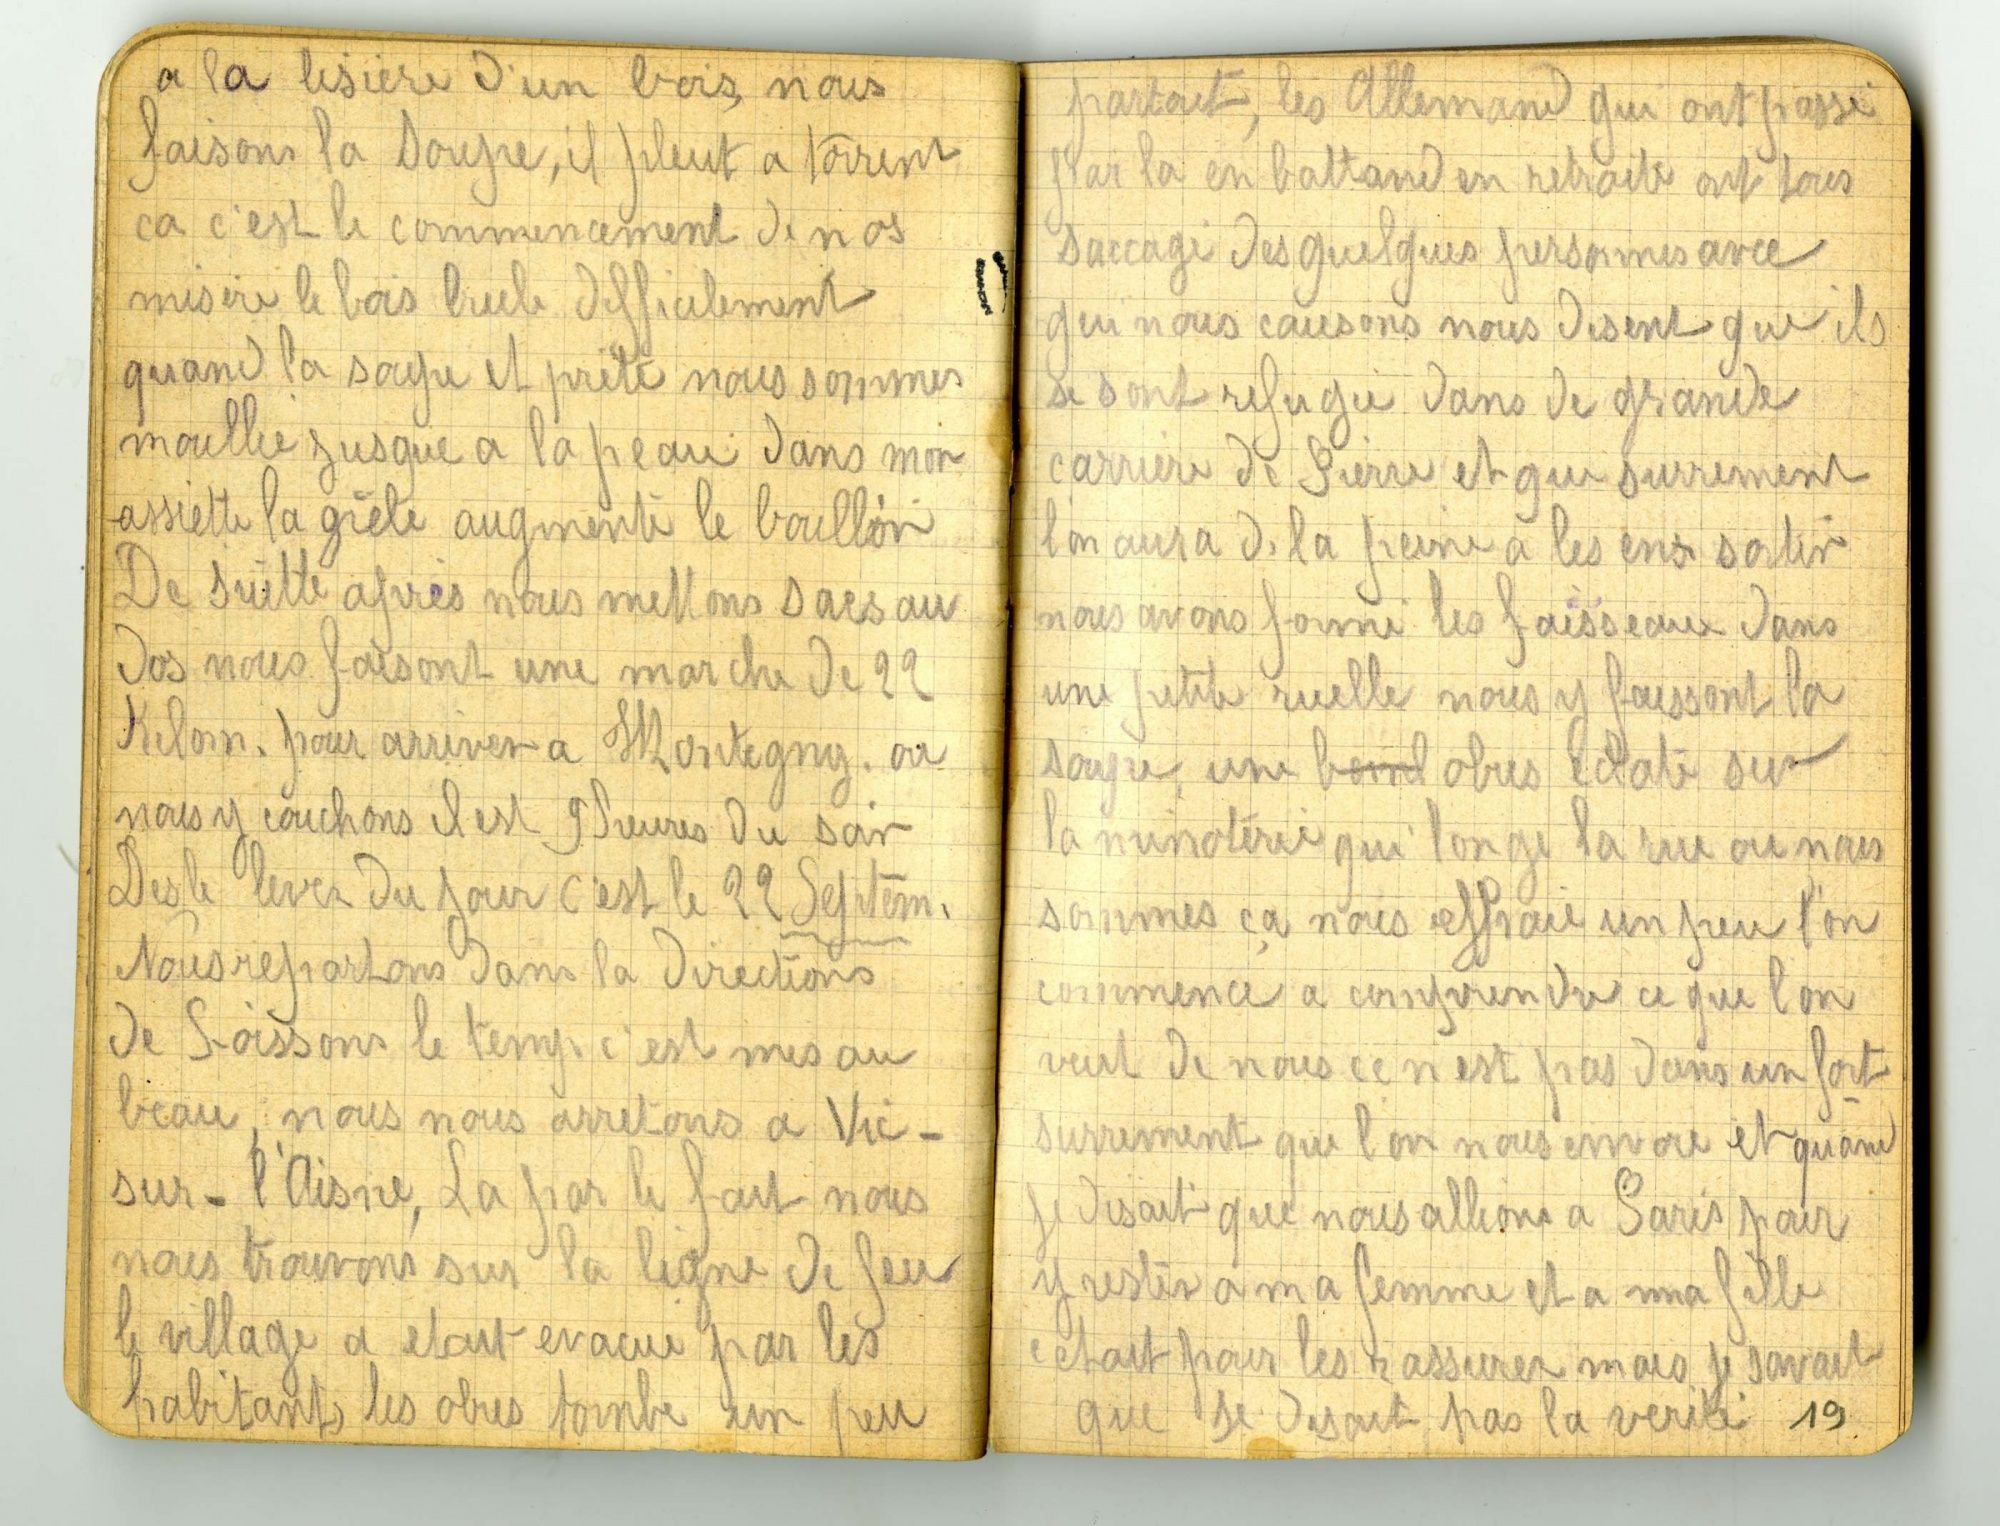 a la lisière d'un bois, nous
faisons la soupe, il pleut a torrent
ca c'est le commencement de nos
misère le bois brule difficilement
quand la soupe et prête nous sommes
moullie jusque a la peau dans mon
assiette la grèle augmente le boullon
De suitte après nous mettons sacs au
dos nous faisont une marche de 22
Kilom. pour arriver a Montegny. ou
nous y couchons il est 9 heures du soir
Des le lever du jour c'est le 22 Septem.
Nous repartons dans la directions
de Soissons le temp c'est mis au
beau, nous nous arretons a Vic-
sur-l'Aisne, La par le fait nous
nous trouvons sur la ligne de feu
le village a etait evacué par les
habitant, les obus tombe un peu
partout, les Allemand qui ont passé
par la en battand en retraite ont tous
saccagé des quelques personnes avec
qui nous causons nous disent que ils
se sont refugié dans de grande
carrière de Pierre et que surrement
l'on aura de la peine a les en sortir
nous avons formé les faisseaux dans
une petite ruelle nous y faissont la
soupe, une bomb obus éclate sur
la minoterie qui longe la rue ou nous
sommes ça nous effraie un peu l'on
commence a comprendre ce que l'on
veut de nous ce n'est pas dans un fort
surrement que l'on nous envoie et quand
je disait que nous allions a Paris pour
y rester a ma femme et a ma fille
cetait pour les rassurer mais je savait
que je disait pas la verité 19